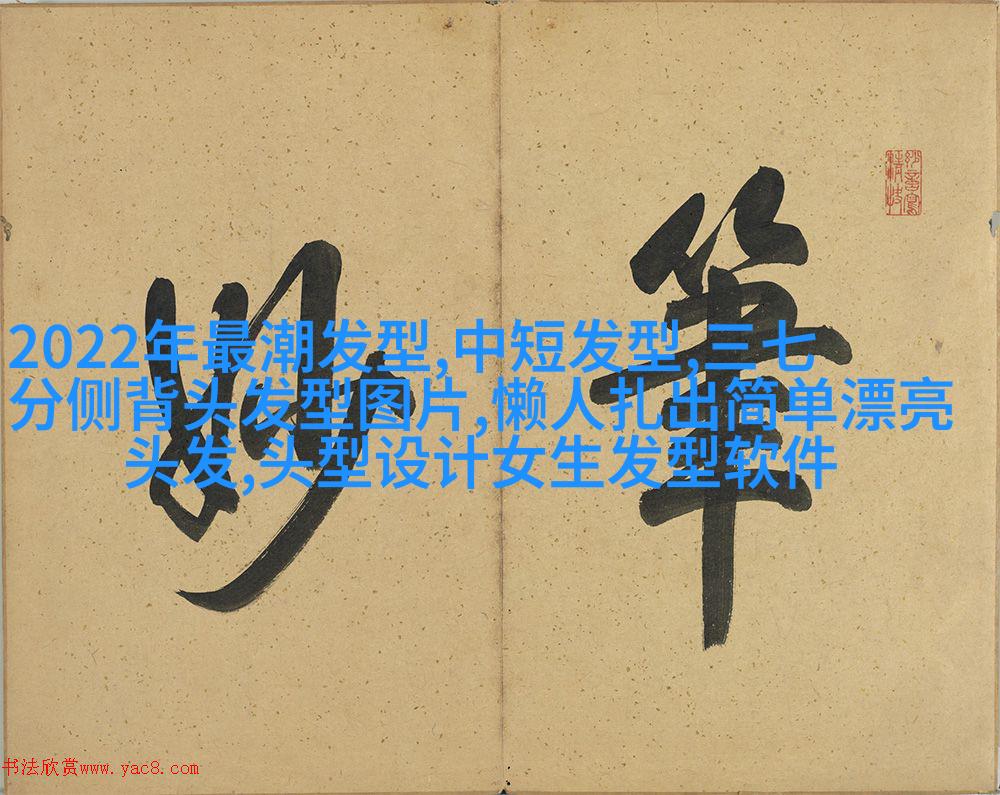 筆
妙
2022年最潮发型,中短发型,三七
分侧背头发型图片,懒人扎出简单漂亮
头发,头型设计女生发型软件
书法欣赏www.yac8.com